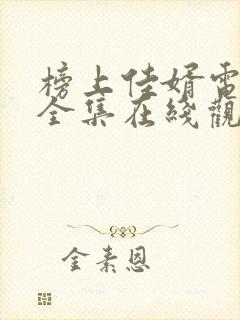 榜上佳婿電
全集在綫觀
金素恩